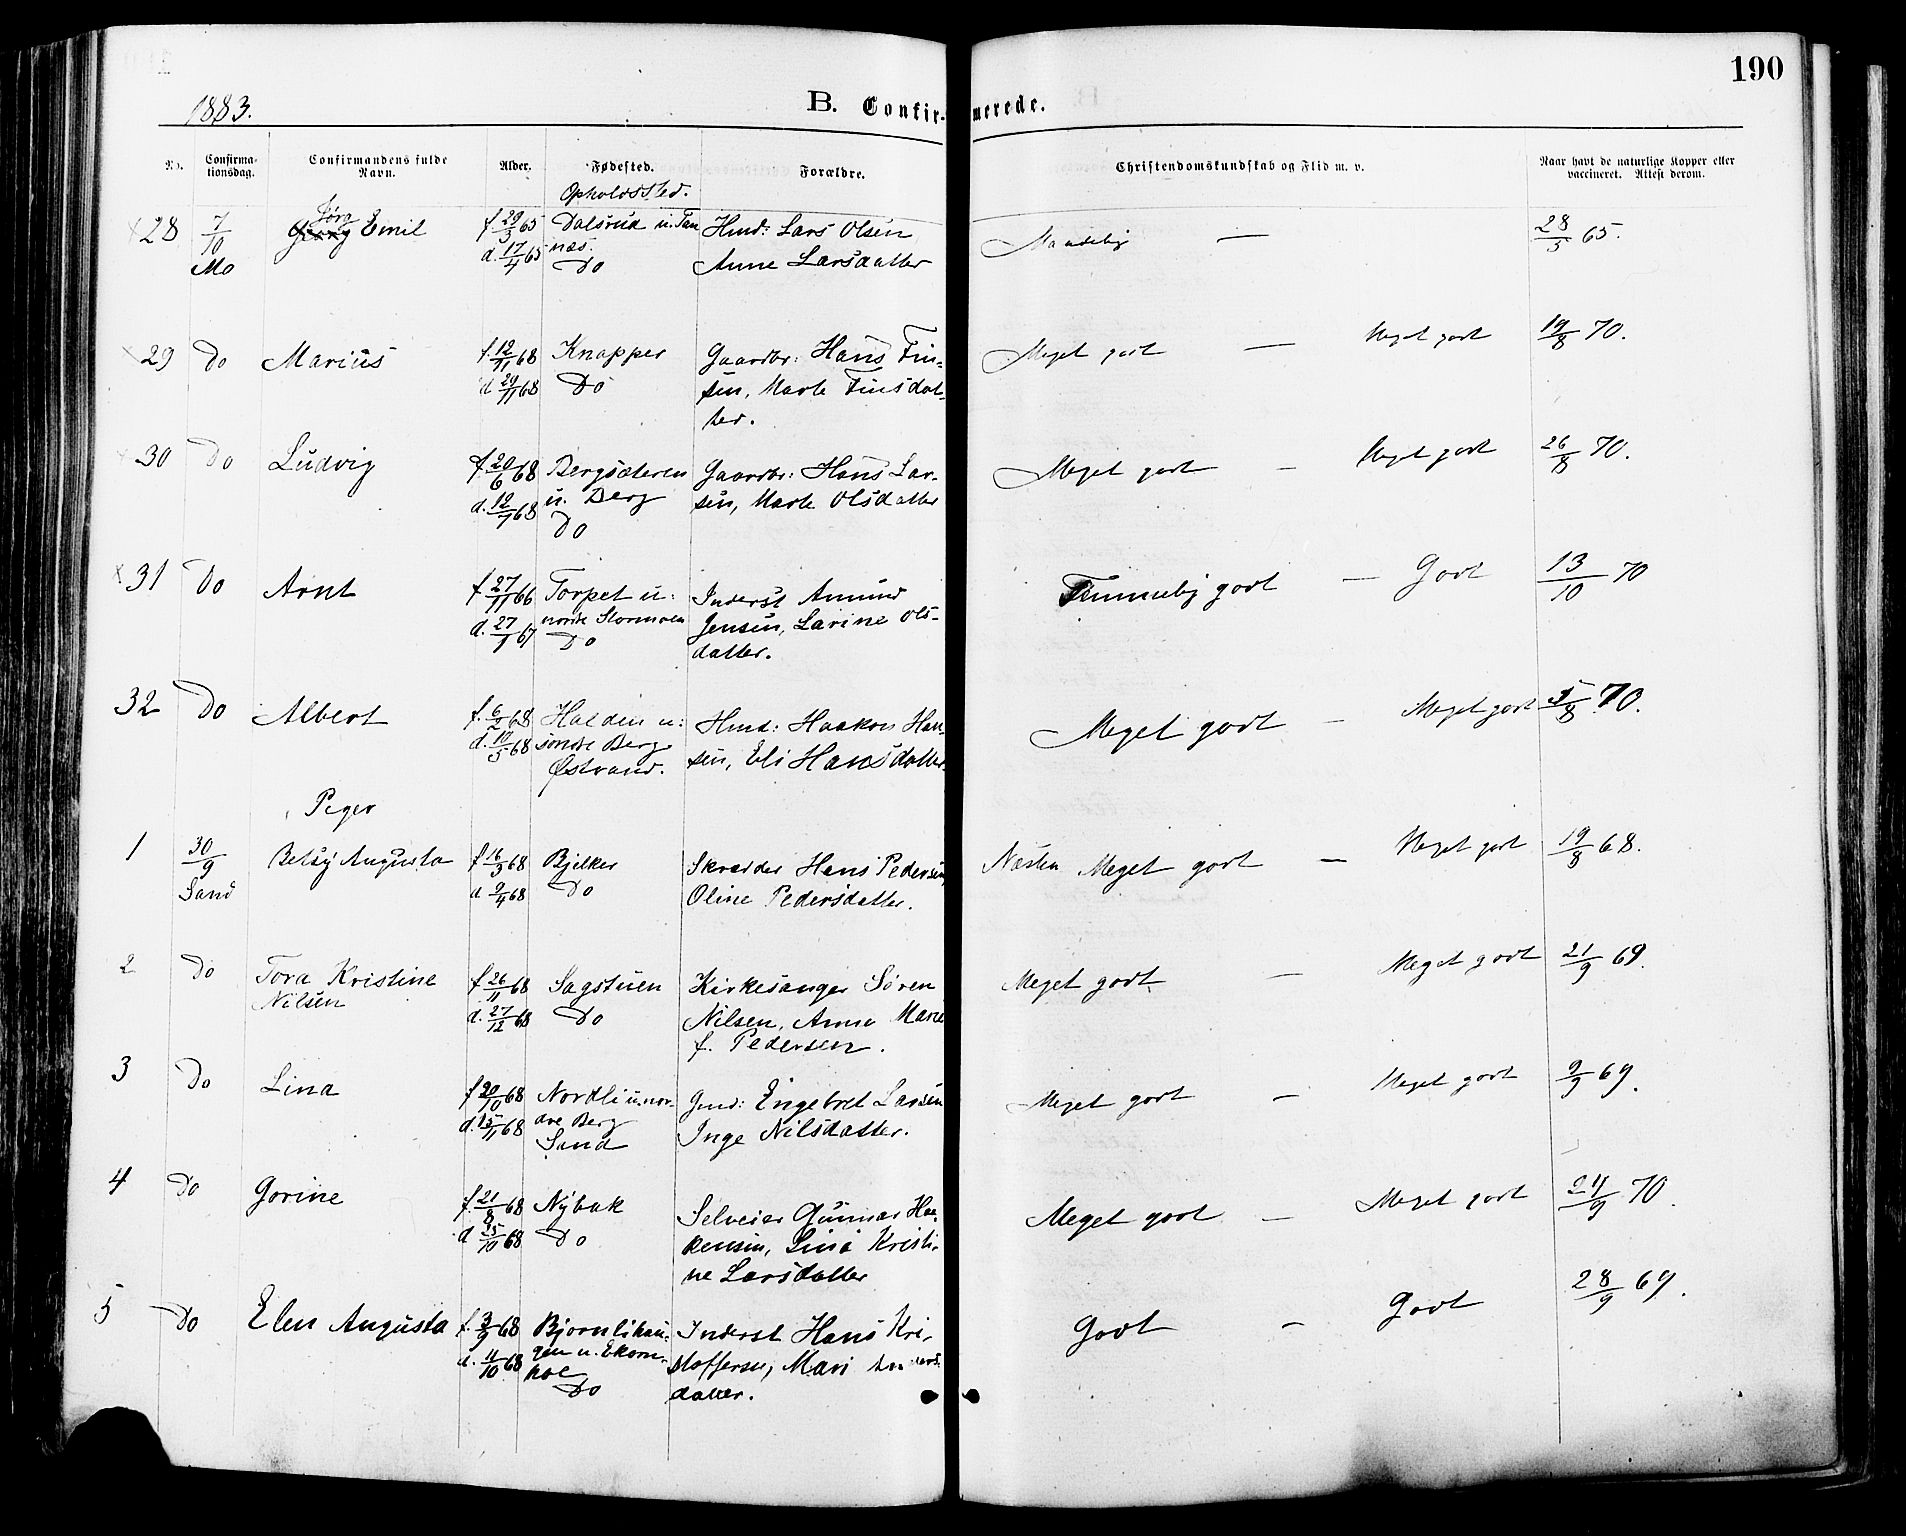 190
1883.
B. Confirmerede.
No. Confirmationsdag. Confirmandens fulde Navn. Alder. Fødested. Opholdssted. Forældre. Christendomskundskab og Flid m. v. Naar havt de naturlige Kopper eller vaccineret. Attest derom.
28 7/10 Mo Jörg Emil f. 29/3 65 Dalsrud u. Tan Hmd: Lars Olsen Maadelig — 28/5 65.
d. 17/4 65 næs. Do Anne Larsdatter
29 Do Marius f. 12/11 68 Knapper Gaardbr: Hans Fin- Meget godt — Meget godt 19/8 70.
d. 29/11 68 Do sen, Marte Finsdat-
ter.
30 Do Ludvig f. 20/6 68 Bergsæteren Gaardbr: Hans Lar- Meget godt — Meget godt 26/8 70.
d. 12/7 68 u. Berg sen, Marte Olsdatter
Do
31 Do Arnt f. 27/11 66 Torpet u: Inderst Amund Temmelig godt — Godt 13/10 70
d. 27/1 67 nordre Stormoen Jensen, Larine Ols-
Do datter.
32 Do Albert f. 6/2 68 Halden u: Hmd: Haakon Han- Meget godt — Meget godt 5/8 70.
d. 10/5 68 søndre Berg sen, Eli Hansdatter
Østvand.
Piger
1 30/9 Sand Betsy Augusta f. 16/3 68 Bjelker Skrædder Hans Pedersen, Næsten Meget godt — Meget godt 19/8 68.
d. 9/4 68 Do Oline Pedersdatter.
2 Do Tora Kristine f. 26/11 68 Sagstuen Kirkesanger Søren Meget godt — Meget godt 21/9 69.
Nilsen d. 27/12 68 Do Nilsen, Anne Marie
f. Pedersen.
3 Do Lina f. 20/10 68 Nordli u. nor- Gmd: Engebret Larsen Meget godt — Meget godt 9/9 69.
d. 15/11 68 dre Berg Inge Nilsdatter.
Sand
4 Do Gorine f. 21/8 68 Nybak Selveier Gunnar Haa- Meget godt — Meget godt 24/9 70.
d. 25/10 68 Do kensen, Lina Kristi-
ne Larsdatter
5 Do Elen Augusta f. 3/9 68 Bjornlihau- Inderst Hans Kri- Godt — Godt 28/9 69.
d. 11/10 68 gen u. Ekorn- stoffersen, Mari
hol Do datter.